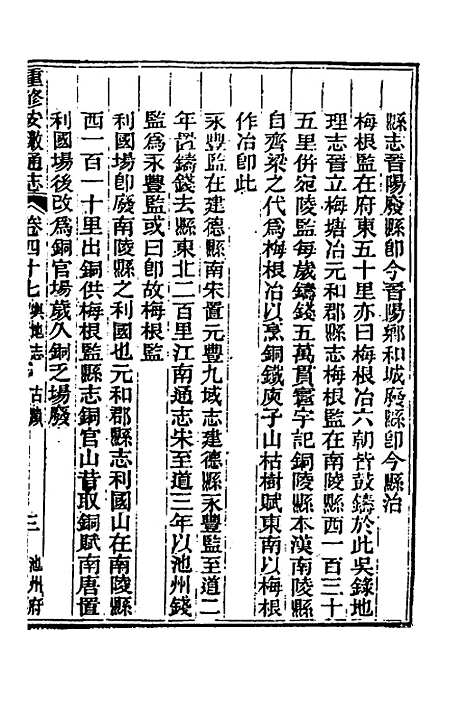 縣志晉陽廢縣卽今晉陽鄉和城廢縣卽今縣治
梅根監在府東五十里亦曰梅根冶六朝皆鼓鑄於此吳錄地
理志晉立梅塘冶元和郡縣志梅根監在南陵縣西一百三十
五里併宛陵監每歲鑄錢五萬貫寰宇記銅陵縣本漢南陵縣
自齊梁之代爲梅根冶以烹銅鐵庾子山枯樹賦東南以梅根
作冶卽此
永豐監在建德縣南宋置元豐九域志建德縣永豐監至道二
年置鑄錢去縣東北二百里江南通志宋至道三年以池州錢
監爲永豐監或曰卽故梅根監
利國場卽廢南陵縣之利國也元和郡縣志利國山在南陵縣
西一百一十里出銅供梅根監縣志銅官山昔取銅賦南唐置
利國場後改爲銅官場歲久銅乏場廢
重修安徽通志 卷四十七 輿地志 古蹟 三 池州府